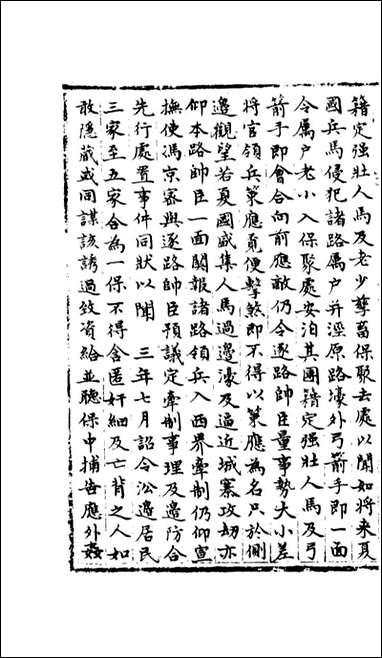 籍定强壮人馬及老少孳畜保聚去處以聞如将来夏
國兵馬侵犯諸路屬户并涇原路壕外弓箭手即一面
令屬户老小入保聚處安泊其團籍定强壮人馬及弓
箭手即會合向前應敵仍令逐路帥臣量事勢大小差
将官領兵策應覓便擊殺即不得以策應為名只於側
邊觀望若夏國盛集人馬過邊濠及逼近城寨攻劫亦
仰本路帥臣一面關報諸路領兵入西界牽制仍仰宣
撫使馮京審與逐路帥臣預議定牽制事理及邊防合
先行處置事件同狀以聞　三年七月詔令沿邊居民
三家至五家合為一保不得舍匿奸細及亡背之人如
敢隱蔵或同謀該誘過致資給並聽保中捕告應外姦